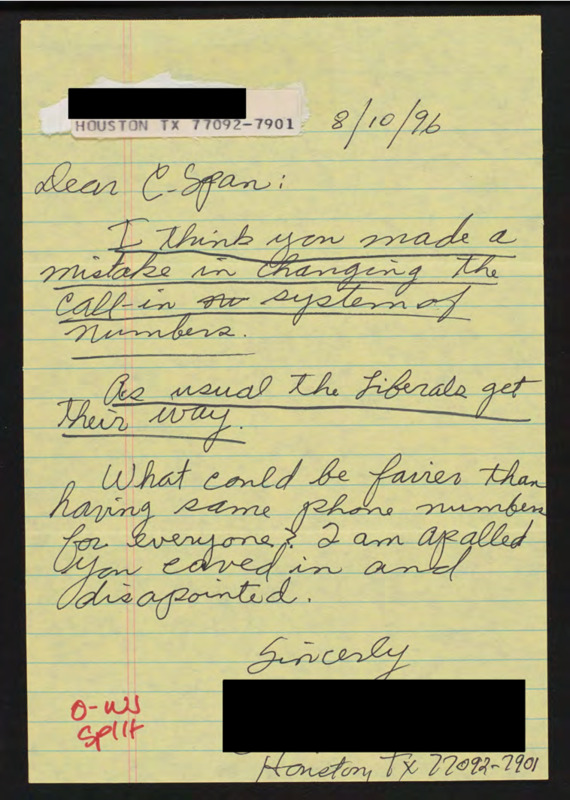 HOUSTON TX 77092-7901
8/10/96
Dear C-Span:
I think you made a
mistake in changing the
call-in no system of
numbers.
As usual the Liberals get
their way.
What could be fairer than
having same phone numbers
for everyone? I am apalled
you caved in and
disapointed.
Sincerly
O-WJ
Split
Houston, TX 77092-7901